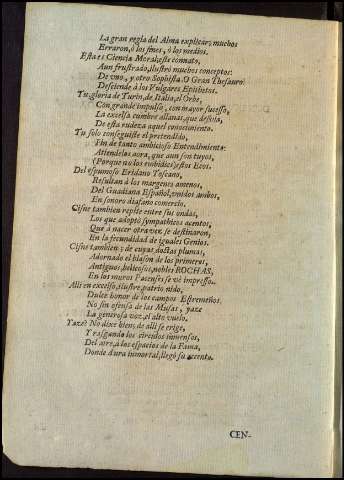 La gran regla del Alma explicar; muchos
Erraron, ò los fines, ò los medios.
Esta es Ciencia Moral; este connato,
Aun frustrado, ilustrò muchos conceptos:
De vno, y otro Sophista. O Gran Thesauro!
Desciende à los Vulgares Epithetos.
Tu, gloria de Turin, de Italia, el Orbe,
Con grande impulso, con mayor sucesso,
La excelsa cumbre allanas, que desvia,
De esta rudeza aquel conocimiento.
Tu solo conseguiste el pretendido,
Fin de tanto ambicioso Entendimiento:
Atiende los aora, que aun son tuyos,
(Porque no los embidies) estos Ecos.
Del espumoso Eridano Toscano,
Resultan à los margenes amenos,
Del Guadiana Español, vnidos ambos,
En sonoro diafano comercio.
Cisne tambien repite entre sus ondas,
Los que adoptò sympathicos acentos,
Que à nacer otra vez se destinaron,
En la fecundidad de iguales Genios.
Cisne tambien; y de cuyas doctas plumas,
Adornado el blasón de los primeros,
Antiguos, belicosos, nobles ROCHAS,
En los muros Pacenses se viò impresso.
Alli en excelso, ilustre, patrio nido,
Dulce honor de los campos Estremeños.
No sin ofensa de las Musas, yaze
La generosa voz, el alto vuelo.
Yaze? No dixe bien; de alli se erige,
Y rasgando los circulos inmensos,
Del aire, à los espacios de la Fama,
Donde dura inmortal, llegò su acento.
CEN-